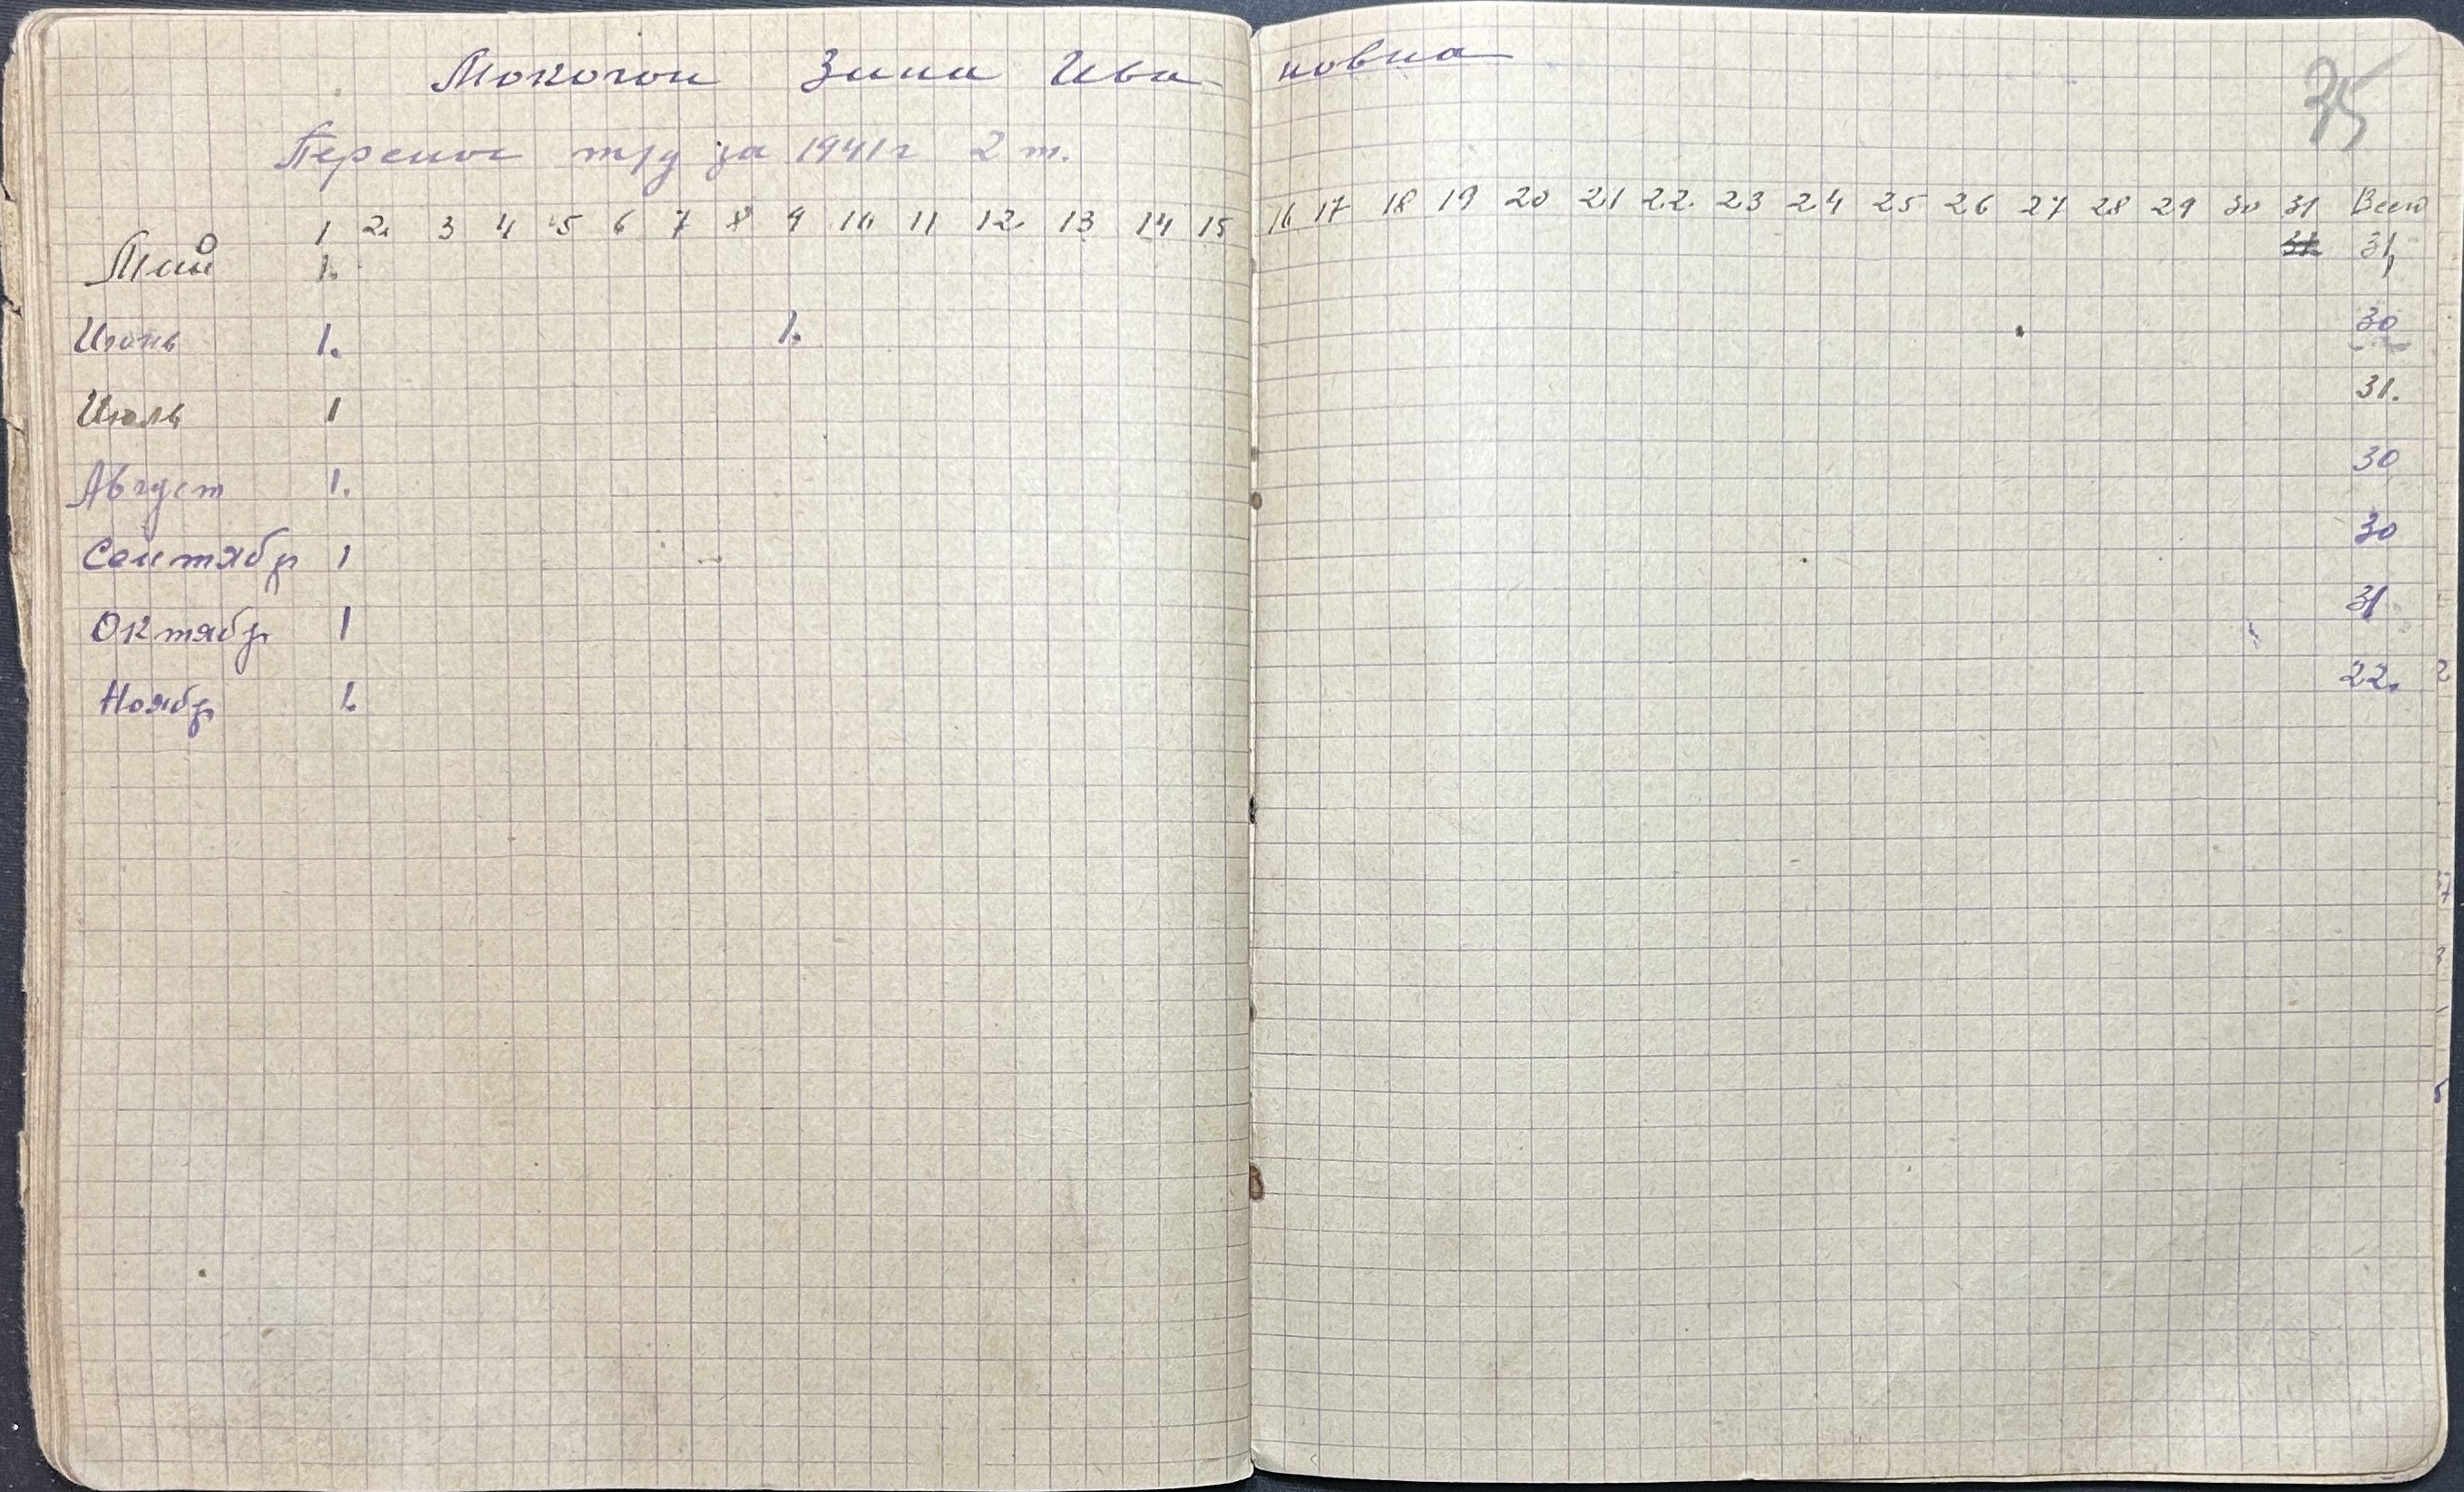 35
Мокогон Зина Ивановна
Перенос тр/д за 1941 г 2 т.
1 2. 3 4 5 6 7 8 9 10 11 12. 13 14 15 16 17 18 19 20 21 22. 23 24 25 26 27 28 29 30 31 Всего
Май 1. 31 31,
Июнь 1. 1. 30
Июль 1 31.
Август 1. 30
Сентябр 1 30
Октябр 1 31
Ноябр 1. 22.